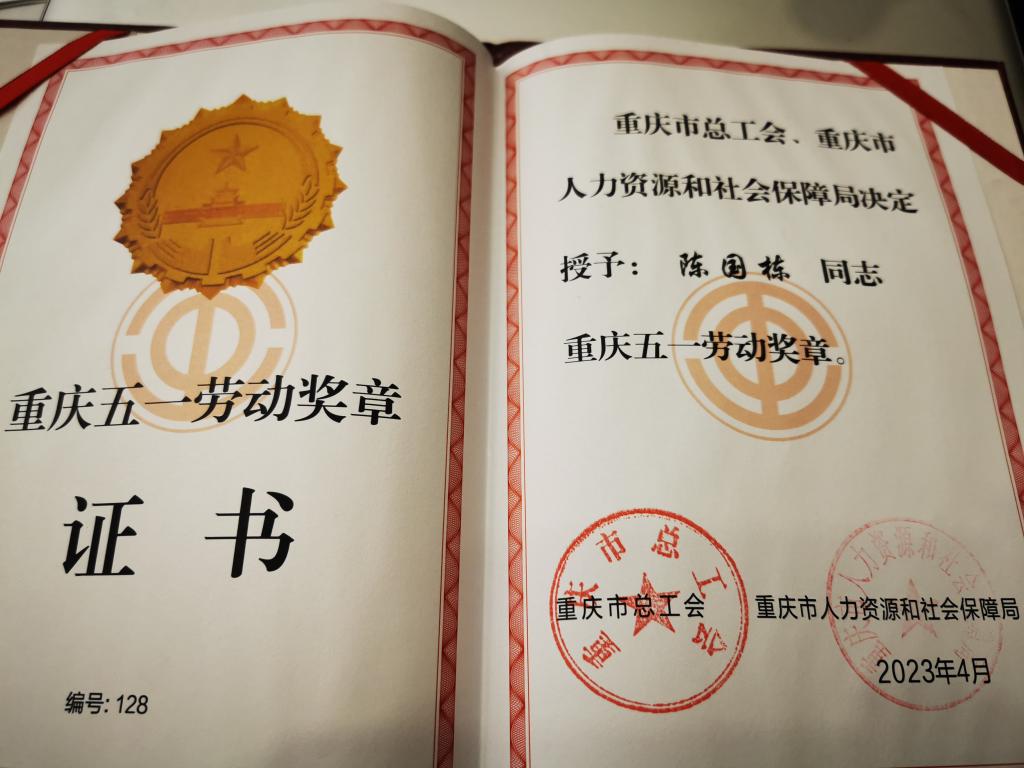 重庆五一劳动奖章
证书
编号: 128
重庆市总工会、重庆市
人力资源和社会保障局决定
授予： 陈国栋 同志
重庆五一劳动奖章。
重庆市总工会
重庆市总工会
重庆市人力资源和社会保障局
重庆市人力资源和社会保障局
2023年4月